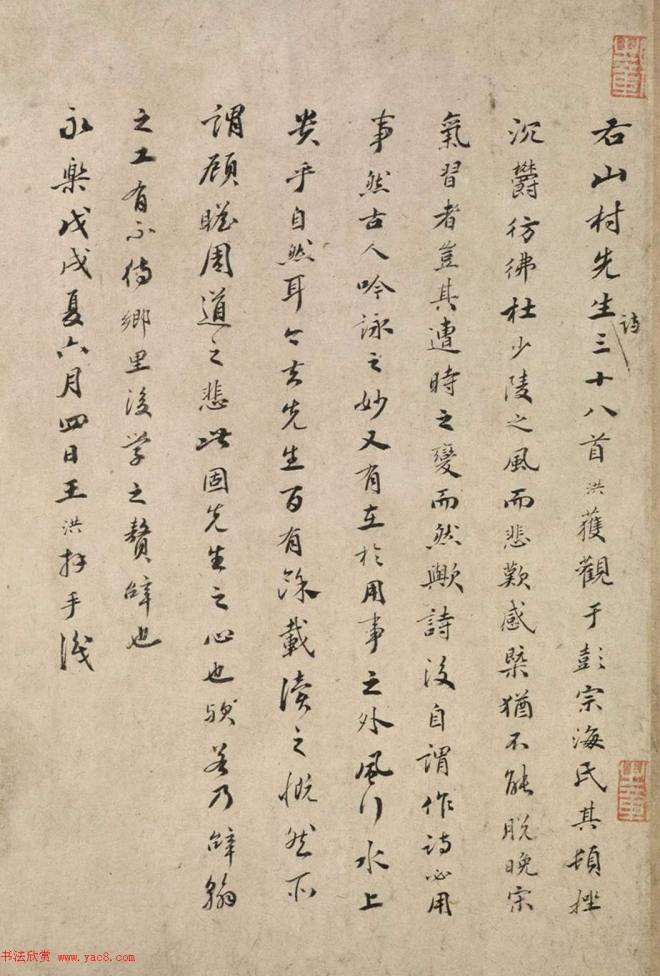 右山村先生詩三十八首洪獲觀于彭宗海氏其頓挫
沉欝彷彿杜少陵之風而悲歎感槩猶不能脫晚宋
氣習者豈其遭時之變而然歟詩後自謂作詩必用
事然古人吟詠之妙又有在於用事之外風行水上
貴乎自然耳今去先生百有餘載讀之慨然所
謂顧瞻周道之悲此固先生之心也歟若乃辭翰
之工有不待鄉里後学之贅辭也
永樂戊戌夏六月四日王洪拜手識
书法欣赏 www.yac8.com